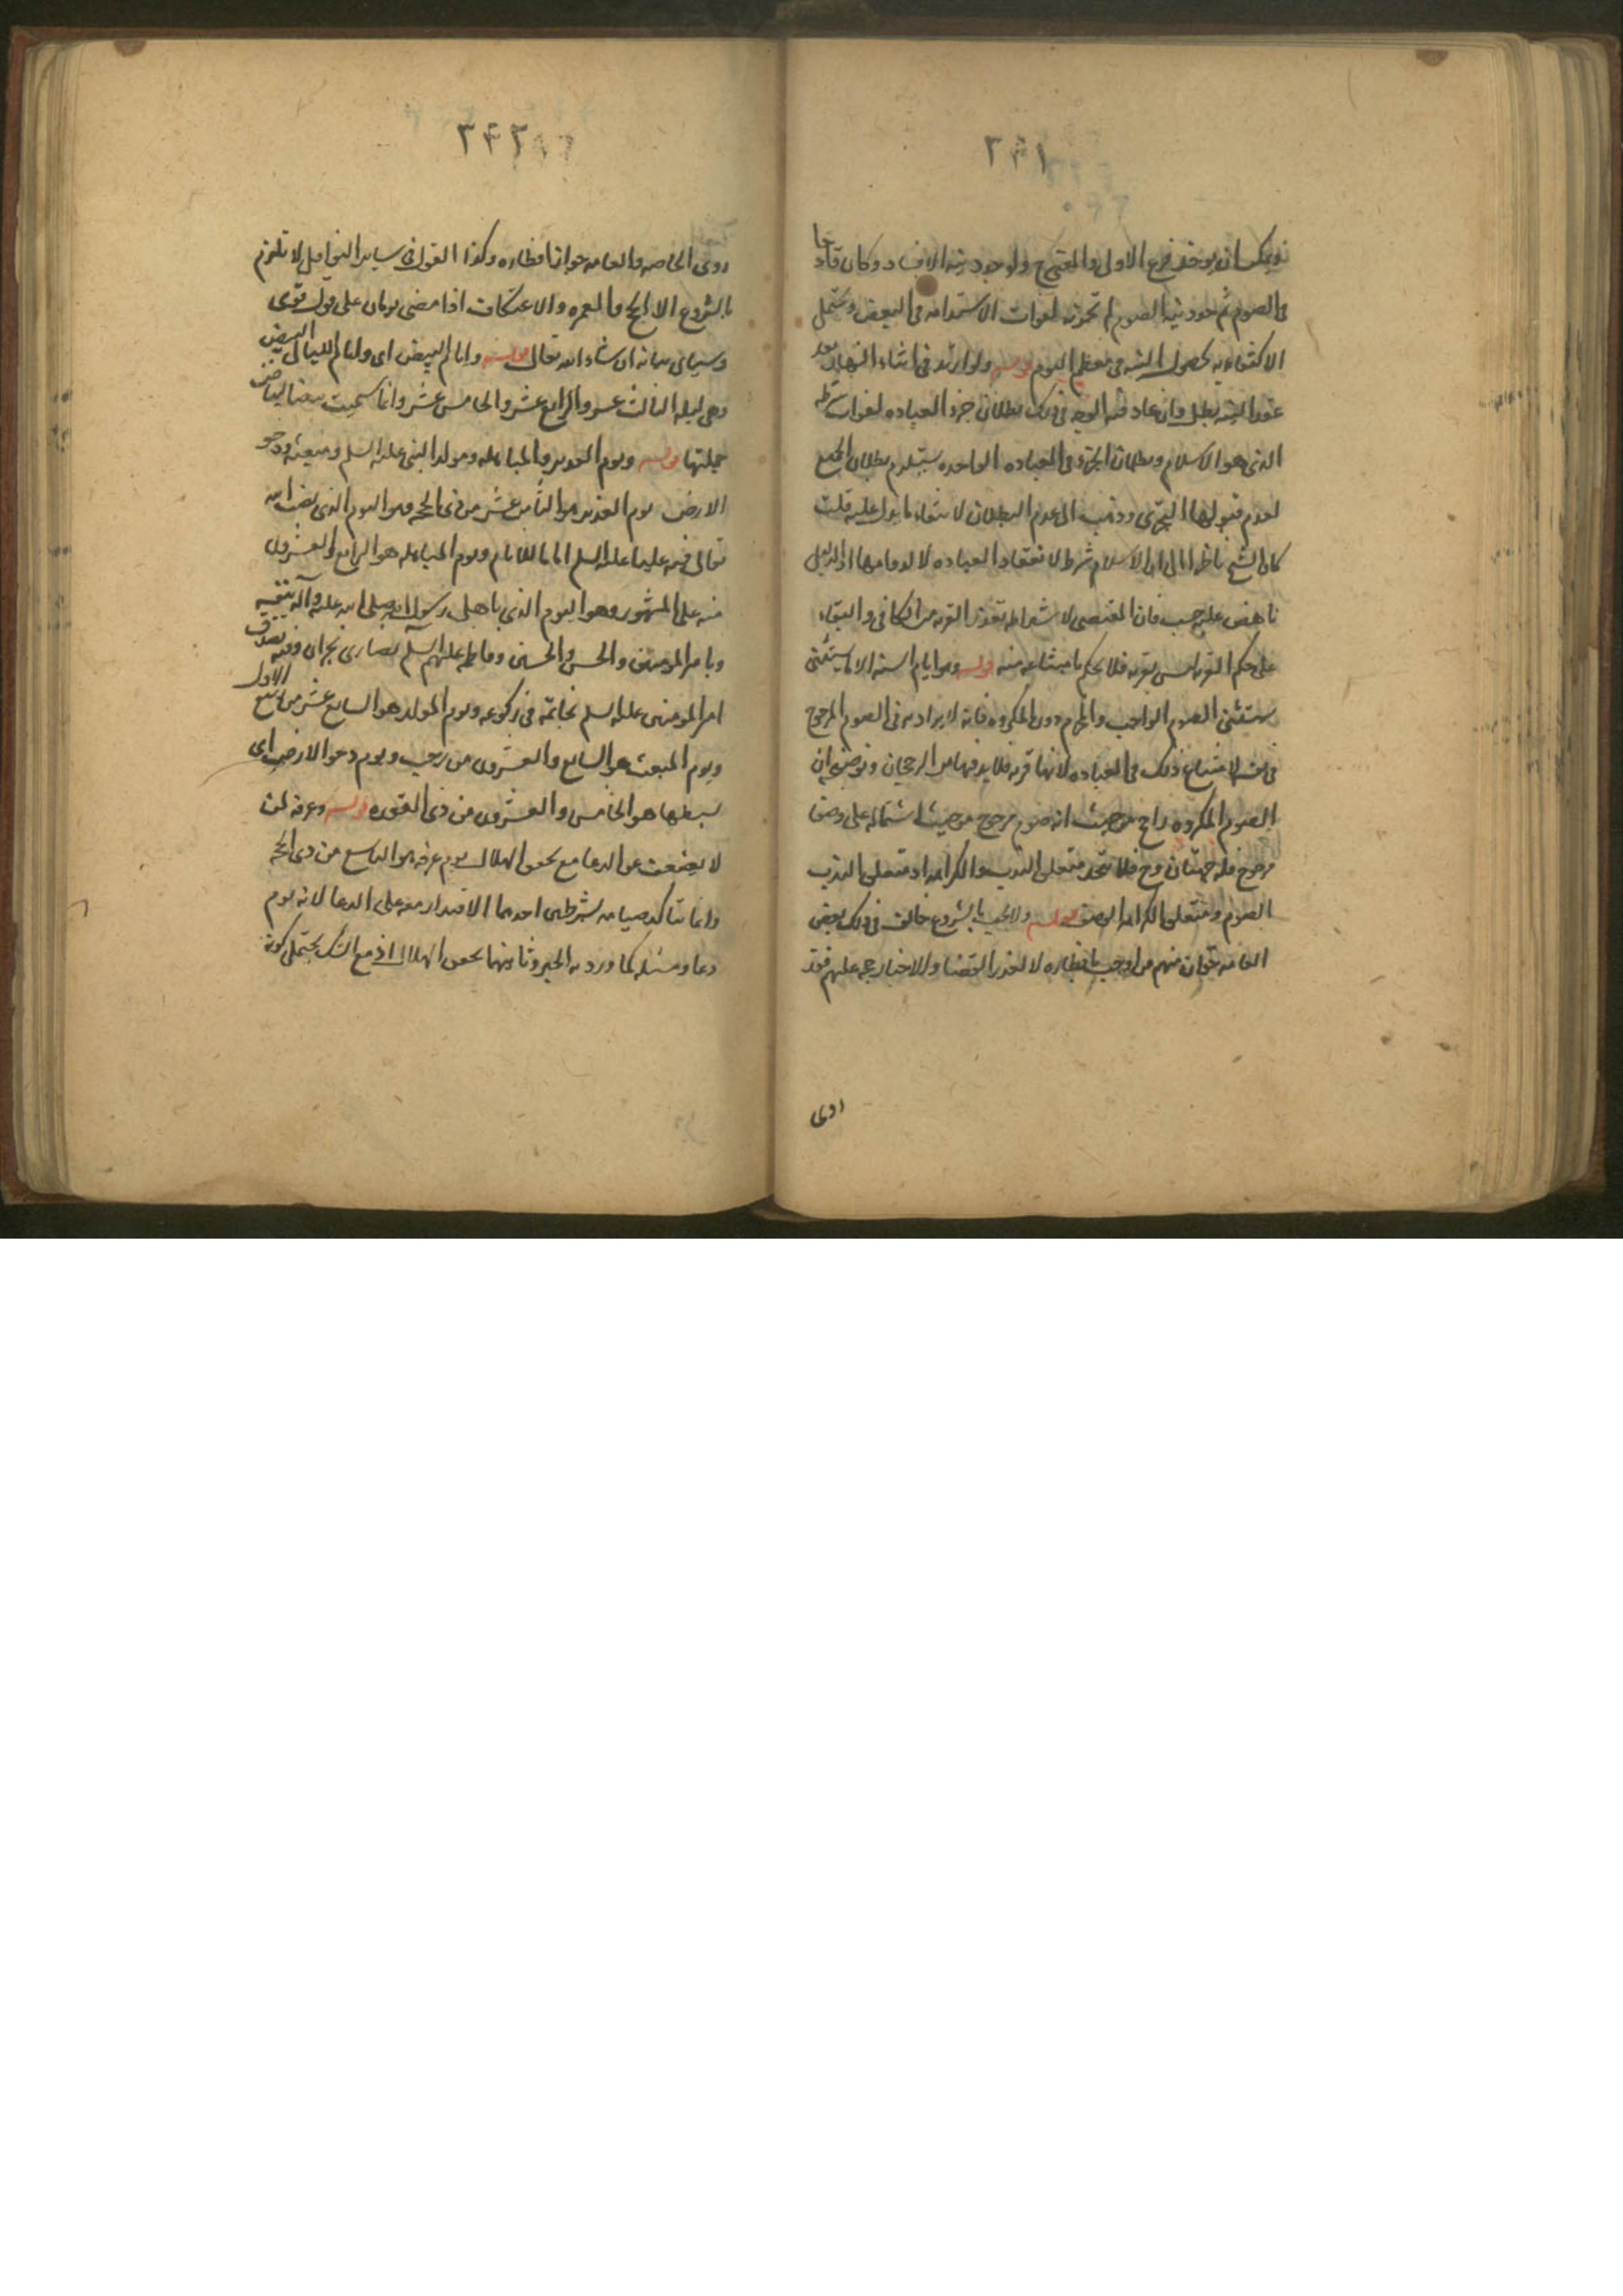 ٢٤١
فيمكن ان يوخذ فرع الاول والمتجه ولوجود نية الافساد وكان قادحا
فى الصوم ثم جدد نية الصوم لم تجز لفوات الاستدامه فى البعض ويحتمل
الاكتفاء به لحصول النيه فى معظم اليوم قوله ولو ارتد فى اثناء النهار بعد
عقد النيه بطل وان عاد فيه الوجه فى ذلك بطلان جزء العباده لفوات شرطه
الذى هو الاسلام وبطلان الجزء فى العباده الواحده يستلزم بطلان الجميع
لعدم قبولها التجزى وذهب الى عدم البطلان لانتفاء ما يدل عليه قلت
كان الشيخ ناظر الى ان الاسلام شرط لانعقاد العباده لا لدوامها اذ الدليل
ناهض عليه حسب فان المقتضى لاشتراطه تعذر القربه من الكافر والبقاء
على حكم القربه ليس بقربه فلا يحكم بامتناعه منه قوله وهو ايام السنه الا ما يستثنى
يستثنى الصوم الواجب والمحرم دون المكروه فانه لا يراد به فى الصوم المرجوح
فى نفسه لامتناع ذلك فى العباده لانها قربه فلا بد فيها من الرجحان وتوضيحه ان
الصوم المكروه راجح من حيث انه صوم مرجوح من حيث اشتماله على وصف
مرجوح فله جهتان وح فلا يتحد متعلق الندب والكراهه اذ متعلق الندب
الصوم ومتعلق الكراهه الوصف قوله ولا يجب بالشروع خالف فى ذلك بعض
العامه فان منهم من اوجب بافطاره لا لعذر القضا والاخبار حجه عليهم فقد
روى
٢٤٢
روى الخاصه والعامه جواز افطاره وكذا القول فى ساير النوافل لا تلزم
بالشروع الا الحج والعمره والاعتكاف اذا مضى يومان على قول قوى
وسياتى بيانه ان شاء الله تعالى قوله وايام البيض اى وايام الليالى البيض
وهى ليله الثالث عشر والرابع عشر والخامس عشر وانما سميت بيضا لبياض
جملتها قوله ويوم الغدير والمباهله ومولد النبى عليه السلم ومبعثه ودحو
الارض يوم الغدير هو الثامن عشر من ذى الحجه وهو اليوم الذى نصب الله
تعالى فيه عليا عليه السلم اماما للانام ويوم المباهله هو الرابع والعشرون
منه على المشهور وهو اليوم الذى باهل رسول الله صلى الله عليه وآله بنفسه
وبامير المومنين والحسن والحسين وفاطمه عليهم السلم نصارى نجران وفيه تصدق
امير المومنين عليه السلم بخاتمه فى ركوعه ويوم المولد هو السابع عشر من ربيع الاول
ويوم المبعث هو السابع والعشرون من رجب ويوم دحو الارض اى
بسطها هو الخامس والعشرون من ذى القعده قوله وعرفه لمن
لا يضعف عن الدعا مع تحقق الهلال يوم عرفه هو التاسع من ذى الحجه
وانما يتاكد صيامه بشرطين احدهما الاقتدار معه على الدعا لانه يوم
دعا ومسئله كما ورد به الخبر وثانيهما تحقق الهلال اذ مع الشك يحتمل كونه